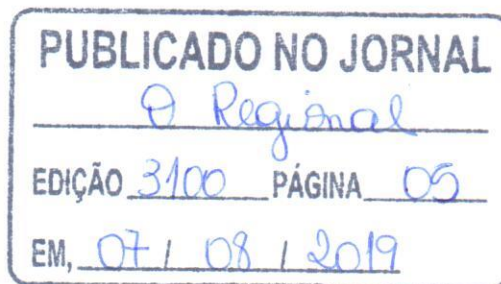 PUBLICADO NO JORNAL
O Regional
EDIÇÃO 3100 PÁGINA 05
EM, 07 / 08 / 2019